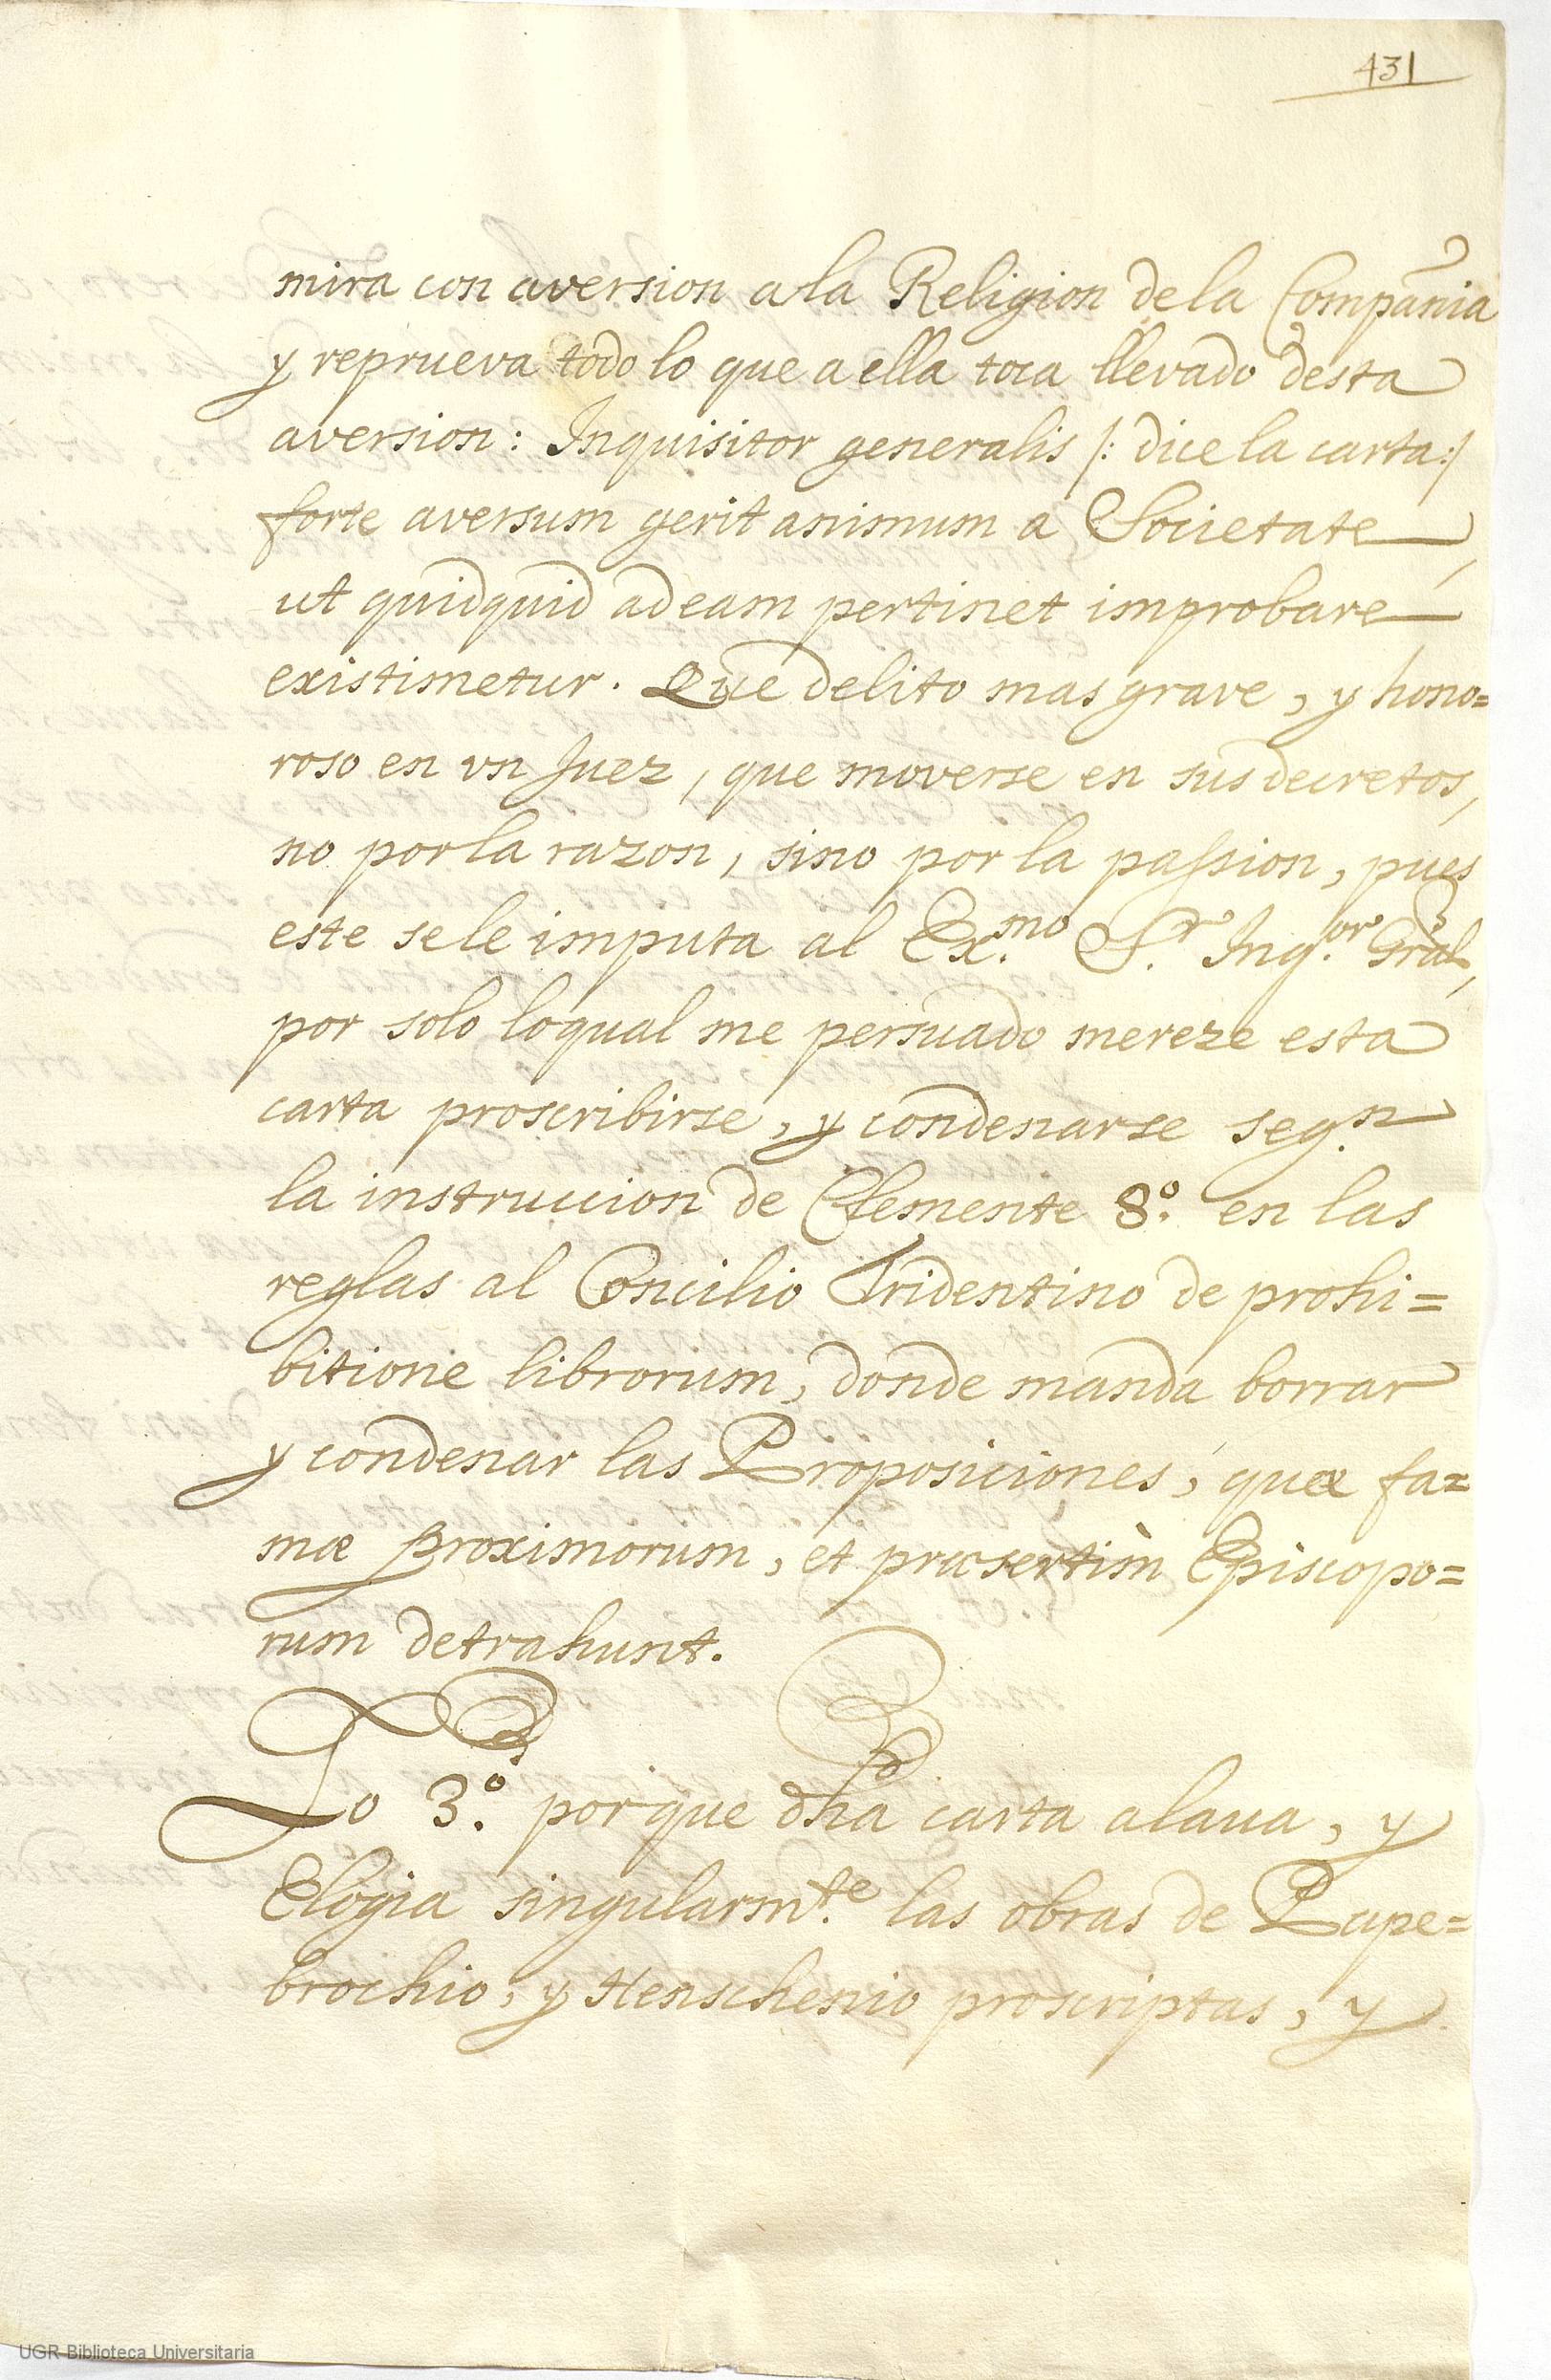 431
mira con aversion a la Religion de la Compañia
y reprueva todo lo que a ella toca llevado desta
aversion: Inquisitor generalis /: dice la carta:/
forte aversum gerit animum a Societate,
ut quidquid ad eam pertinet improbare
existimetur. Que delito mas grave, y hono=
roso en vn Juez, que moverse en sus decretos,
no por la razon, sino por la passion, pues
este se le imputa al Ex.mo S.r Inq.or Gral,
por solo loqual me persuado mereze esta
carta proscribirse, y condenarse seg.n
la instruccion de Clemente 8.º en las
reglas al Concilio Tridentino de prohi=
bitione librorum, donde manda borrar
y condenar las Proposiciones, quæ fa=
mæ proximorum, et præsertìm Episcopo=
rum detrahunt.
Lo 3.º porque dha carta alava, y
Elogia singularm.te las obras de Pape=
brochio, y Henschenio proscriptas, y
UGR Biblioteca Universitaria